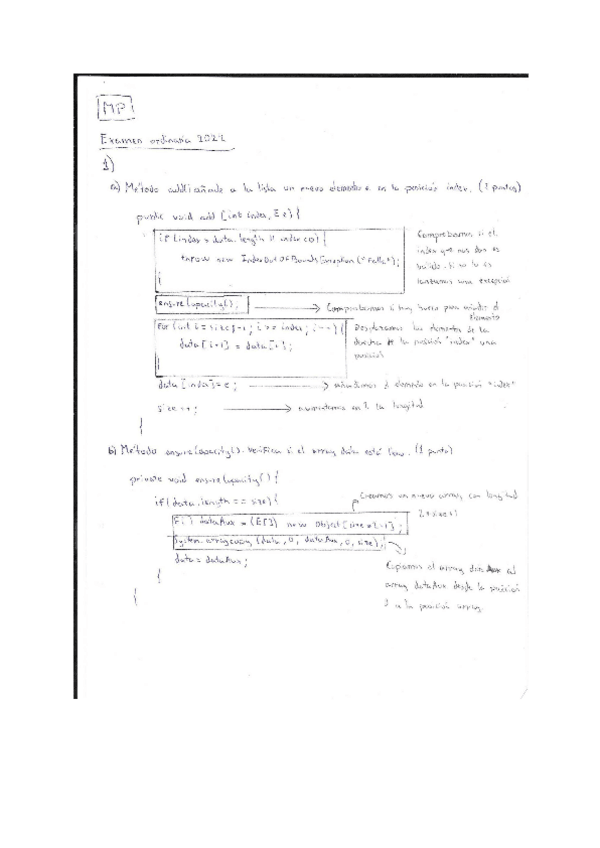 MP
Examen ordinaria 2022
1)
a) Método add() añade a la lista un nuevo elemento e en la posición index. (2 puntos)
public void add (int index, E e) {
if (index > data.length || index < 0) {
throw new IndexOutOfBoundsException("Fallo");
}
Comprobamos si el
index que nos dan es
válido. Si no lo es
lanzamos una excepción
ensureCapacity(); → Comprobamos si hay hueco para añadir el
elemento
for (int i = size-1; i >= index; i--) {
data [i+1] = data [i];
}
Desplazamos los elementos de la
derecha de la posición "index" una
posición
data [index] = e; → añadimos el elemento en la posición "index"
size ++; → aumentamos en 1 la longitud
}
b) Método ensureCapacity(). Verifica si el array data está lleno. (1 punto)
private void ensureCapacity() {
if (data.length == size) {
Creamos un nuevo array con longitud
2*size+1
E[] dataAux = (E[]) new Object [size*2+1];
System.arraycopy (data, 0, dataAux, 0, size);
data = dataAux;
}
}
Copiamos el array data al
array dataAux desde la posición
a la posición array